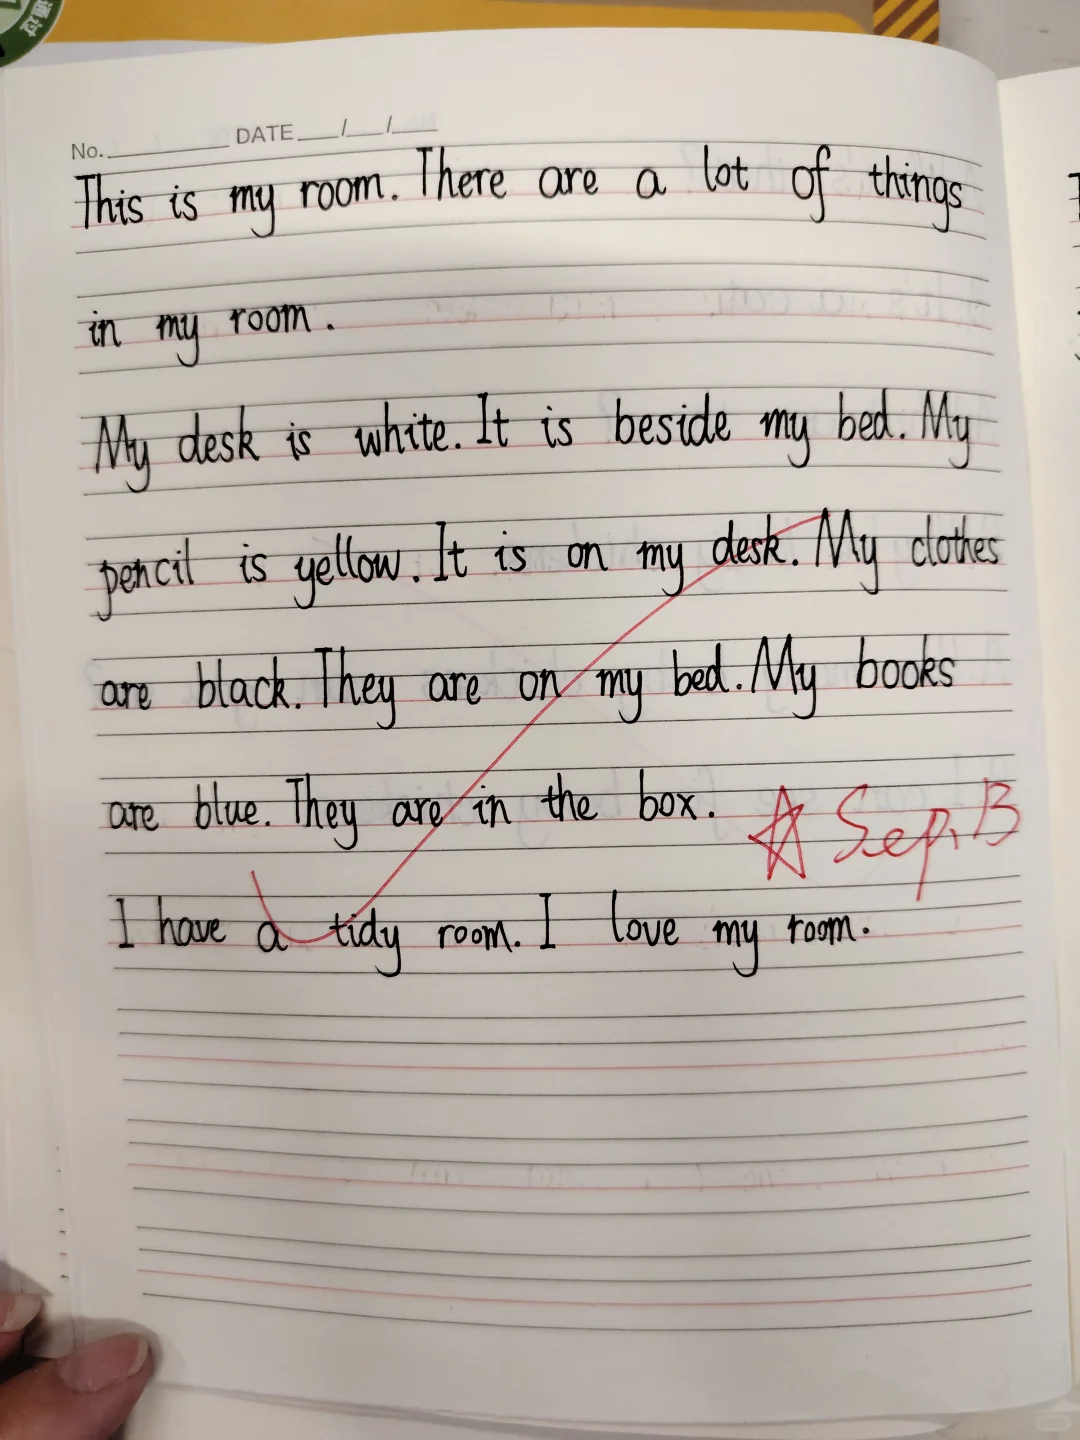 通过
No. DATE / /
This is my room. There are a lot of things
in my room.
My desk is white. It is beside my bed. My
pencil is yellow. It is on my desk. My clothes
are black. They are on my bed. My books
are blue. They are in the box.
☆ Sep. B
I have a tidy room. I love my room.